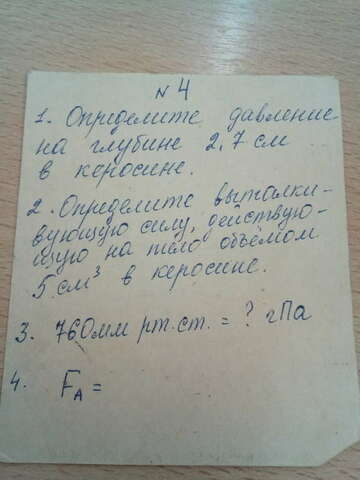 N 4
1. Определите давление
на глубине 2,7 см
в керосине.
2. Определите выталки-
вующую силу, действую-
щую на тело объёмом
5 см³ в керосине.
3. 760мм рт.ст. = ? гПа
4. FА =